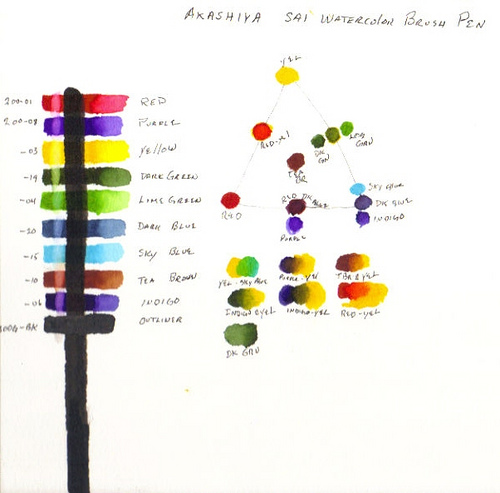 AKASHIYA SAI WATERCOLOR BRUSH PEN
200-01 RED
200-08 PURPLE
-03 YELLOW
-19 DARK GREEN
-04 LIME GREEN
-20 DARK BLUE
-15 SKY BLUE
-10 TEA BROWN
-06 INDIGO
OUTLINER
YEL
RED-YEL
DK GRN
TEA BR
SKY BLUE
RED DK BLUE
DK BLUE
RED
INDIGO
PURPLE
YEL-SKY BLUE
PURPLE-YEL
TBR & YEL
INDIGO & YEL
INDIGO-YEL
RED-YEL
DK GRN